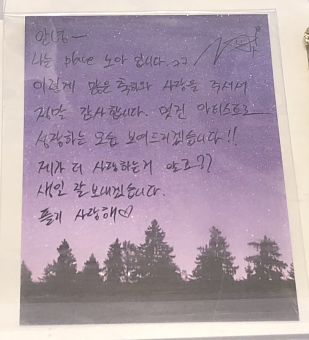 안녕~
나는 plave 노아 입니다.>>
이렇게 많은 축하와 사랑을 주셔서
정말 감사합니다. 멋진 아티스트로
성장하는 모습 보여드리겠습니다!!
제가 더 사랑하는거 알죠??
생일 잘 보내겠습니다.
플리 사랑해♡